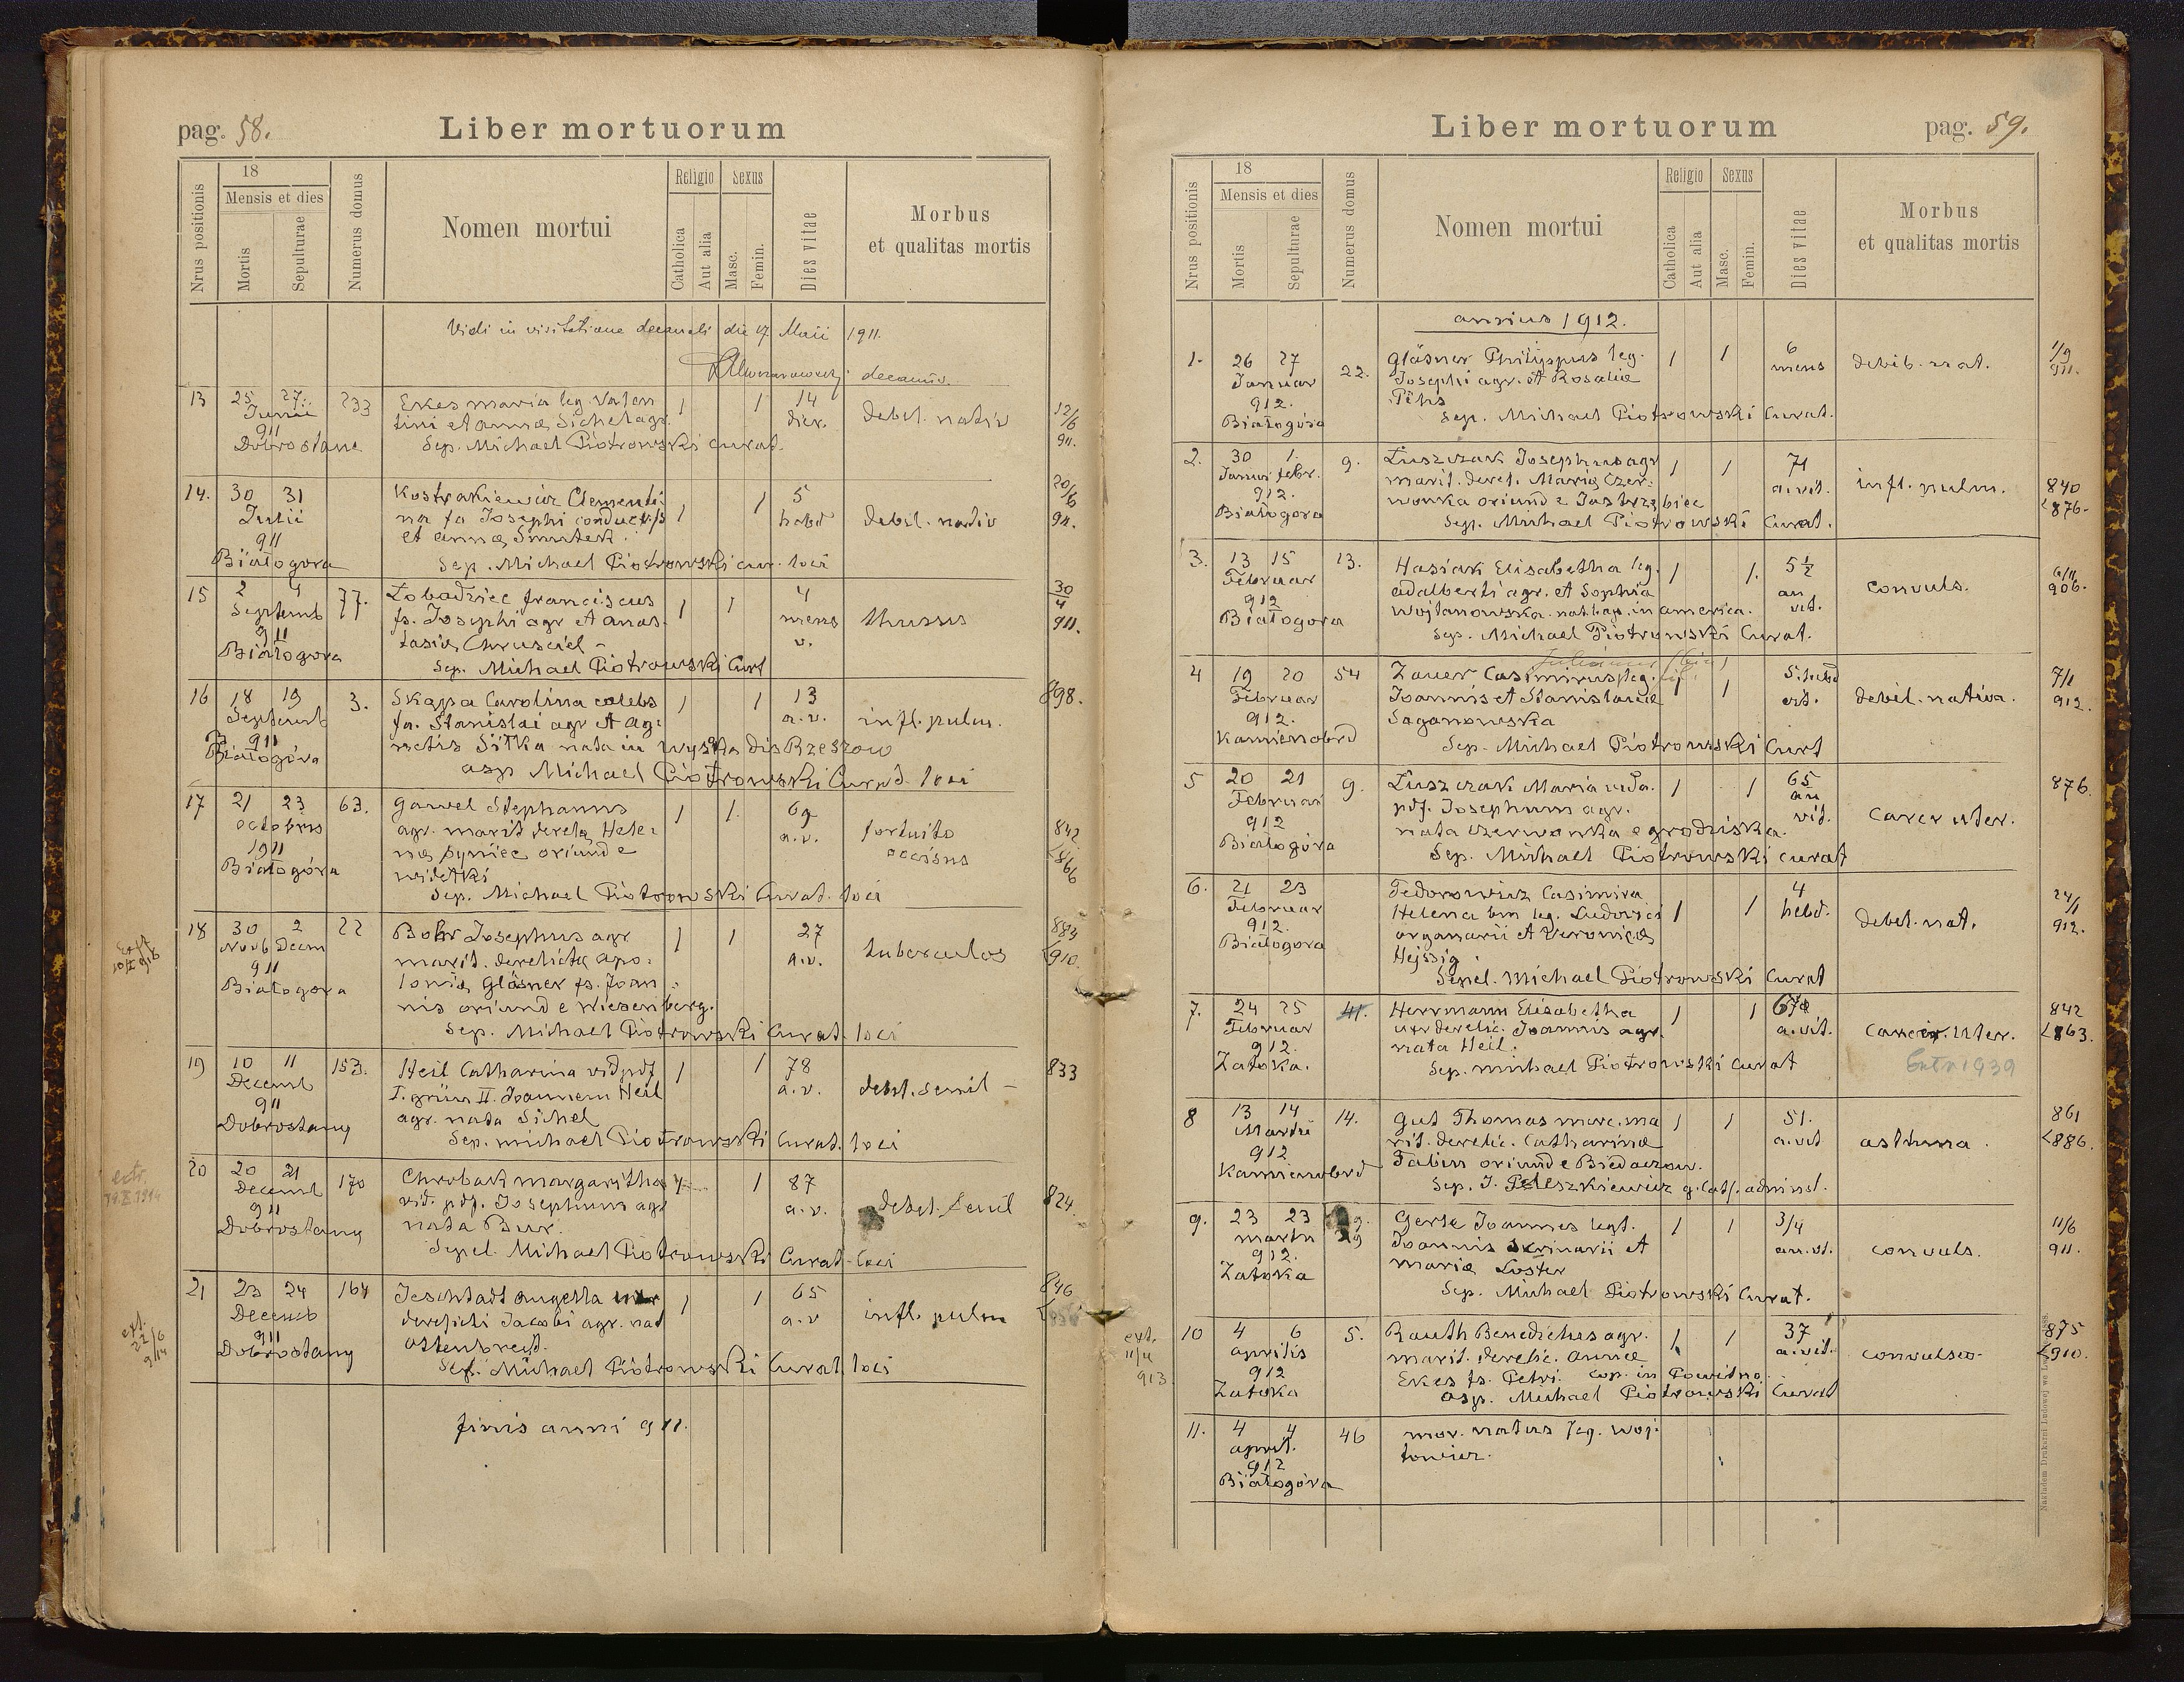 pag. 58.
Liber mortuorum
Nrus positionis
18
Mensis et dies
Mortis
Sepulturae
Numerus domus
Nomen mortui
Religio
Catholica
Aut alia
Sexus
Masc.
Femin.
Dies vitae
Morbus
et qualitas mortis
Vidi in visitatione decanali die 17 Maii 1911.
decanus.
13 25 27 233 Ekes Maria leg. Valen 1 1 14 debil. nativ 12/6
Junii tini et Annæ Sichel agr. dier. 911.
911
Dobrostane Sep. Michael Piotrowski Curat.
14. 30 31 Kostrakiewicz Clementi 1 1 5 debil. nativ 20/6
Julii na fa Josephi conduct. hebd 911.
911 et Annæ Smutek.
Białogora Sep. Michael Piotrowski cur. loci
15 2 4 77. Łobadziec Franciscus 1 1 4 thussis 30/4
Septemb fs. Josephi agr et Anas mens 911.
911 tasiæ Chruściel v.
Białogora Sep. Michael Piotrowski Curt
16 18 19 3. Skapa Carolina cœlebs 1 1 13 infl. pulm. 898.
Septemb fa. Stanislai agr et Ag: a.v.
911 netis Sitka nata in Wysoka dis Rzeszow
Białogóra asp Michael Piotrowski Curat. loci
17 21 23 63. Gaweł Stephanus 1 1. 69 fortuito 842
octobris agr. marit derelq Hele: a.v. occisus 866
1911 næ Pyniec oriund e
Białogóra widełki
Sep. Michael Piotrowski Curat. loci
18 30 2 22 Bohr Josephus agr 1 1 27 tuberculos 884
Novb Decm marit. derelictæ Apo: a.v. 910.
911 loniæ Gläsner fs. Joan
Białogora nis oriund e Wiesenberg.
Sep. Michael Piotrowski Curat. loci
19 10 11 153. Heil Catharina vid pdf 1 1 78 debil. senil 833
Decemb I. Grün II. Joannem Heil a.v.
911 agr. nata Sichel
Dobrostany Sep. Michael Piotrowski Curat. loci
20 20 21 170 Chrobak Margaritha 1 87 debil. senil 824.
Decemb vid. pdf. Josephum agr a.v.
911 nata Bur.
Dobrostany Sepel. Michael Piotrowski Curat. loci
21 23 24 164 Jeschtadt Angella uxor 1 1 65 infl. pulm 846
Decemb derelicti Jacobi agr. nat a.v
911
Dobrostany Sep. Michael Piotrowski Curat. loci
finis anni 911.
Liber mortuorum
pag. 59.
Nrus positionis
18
Mensis et dies
Mortis
Sepulturae
Numerus domus
Nomen mortui
Religio
Catholica
Aut alia
Sexus
Masc.
Femin.
Dies vitae
Morbus
et qualitas mortis
annus 1912.
1. 26 27 22. Gläsner Philippus leg. 1 1 6 debib. nat. 1/9
Januar Josephi agr. et Rosaliæ mens 911.
912. Pihs
Białogóra Sep. Michael Piotrowski Curat.
2. 30 1. 9. Łuszczak Josephus agr 1 1 71 infl. pulm. 840
Januar febr. marit. derel. Mariæ Czer: a.vit. 876.
912. wonka oriund e Jastrzębiec
Białogora Sep. Michael Piotrowski Curat.
3. 13 15 13. Hasiak Elisabetha leg. 1 1. 5½ convuls. 6/11
Februar Adalberti agr. et Sophia an 906.
912 Wojtanowska nat. bap. in America. vit.
Białogora Sep. Michael Piotrowski Curat.
4 19 20 54 Zauer Casimirus leg. 1 1 5 hebd debil. nativa. 7/1
Februar Joannis et Stanislavæ vit. 912.
912. Saganowska
Kamienobrod Sep. Michael Piotrowski Curt
5 20 21 9. Łuszczak Maria vida. 1 1 65 Carcr uter. 876.
Februar pdf. Josephum agr. an
912 nata Czerwonka e Grodziska. vit.
Białogóra Sep. Michael Piotrowski curat
6. 21 23 Fedorowicz Casimira 1 1 4 debil. nat. 24/1
Februar Helena bin leg. Ludovici hebd. 912.
912. organarii et Veronicæ
Białogora Hejssig.
Sepel. Michael Piotrowski Curat
7. 24 25 41. Herrmann Elisabetha 1 1 carcin. uter. 842
Februar uxr derelic. Joannis agr. a.vit. 863.
912. nata Heil.
Zatoka. Sep. Michael Piotrowski Curat
1939
8 13 14 14. Gut Thomas murc. ma 1 1 51. asthma. 861
Martii rit. derelic. Catharinæ a.vit 886.
912 Fabin oriund e Biedaczow.
Kamienobrd Sep. J. Pełeszkiewicz g. cat. administ.
9. 23 23 Gerle Joannes legt. 1 1 3/4 convuls. 11/6
Martii Joannis scrinarii et an.vt. 911.
912. Mariæ Loster
Zatoka Sep. Michael Piotrowski Curat.
ext. 11/4 913 10 4 6 5. Rauth Benedictus agr. 1 1 37 convulsio 875
aprilis marit. derelic. Annæ a.vit. 910.
912 Ekes fs. Petri. cop. in Powitno.
Zatoka asp. Michael Piotrowski Curat
11. 4 4 46 mor. natus leg. Woj:
april. towicz.
912
Białogóra